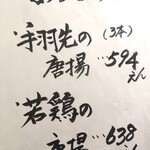 ・手羽先の(3本)
唐揚…594えん
・若鶏の
唐揚…638えん